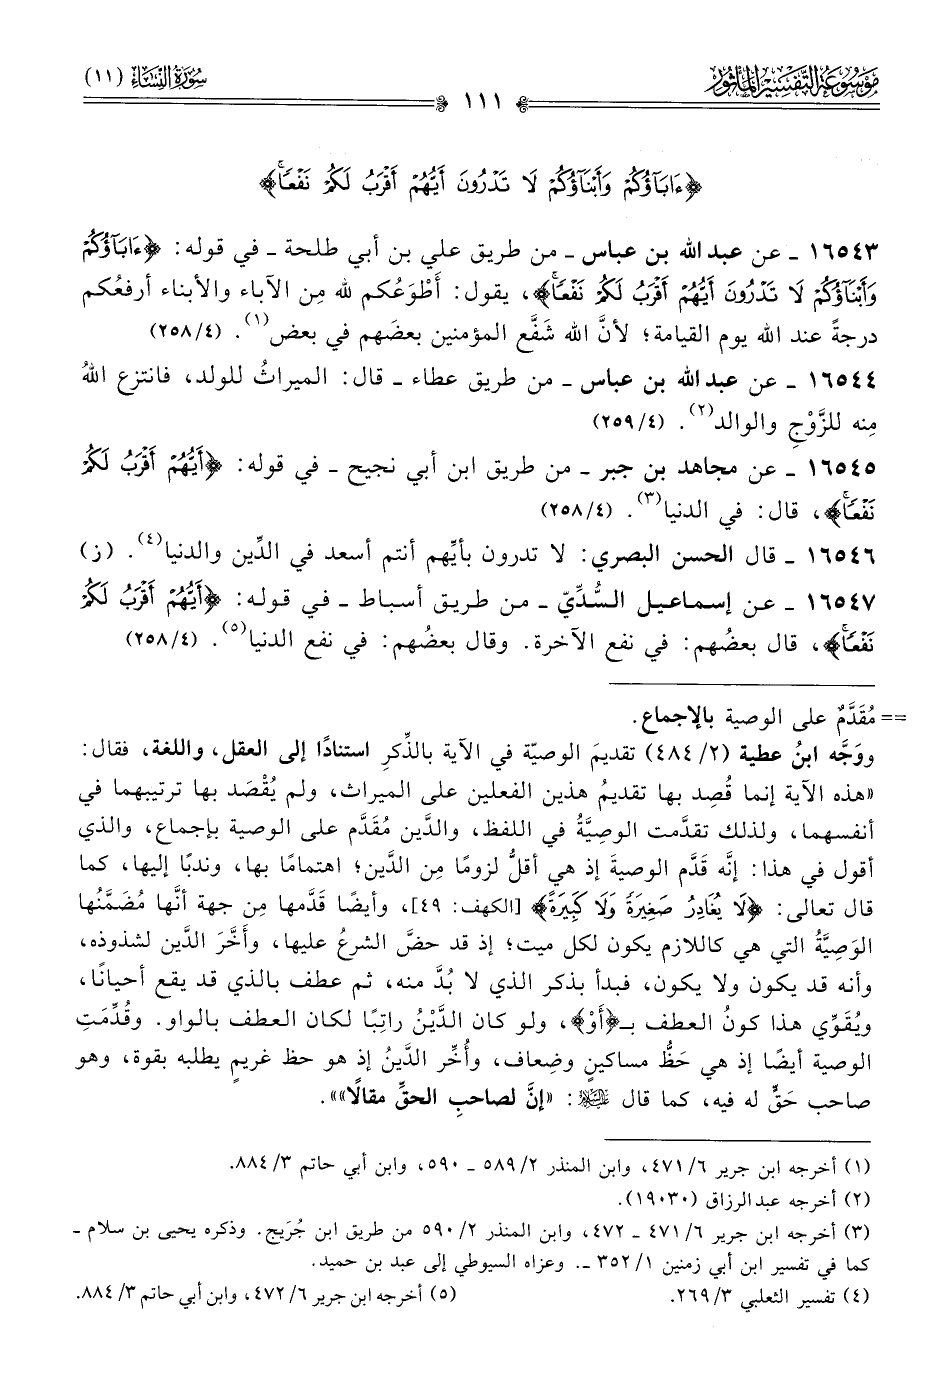 مَوْسُوعَةُ التَّفْسِيرِ المَأْثُورِ
سُورَةُ النِّسَاءِ (١١)
١١١
﴿ءَابَآؤُكُمْ وَأَبْنَآؤُكُمْ لَا تَدْرُونَ أَيُّهُمْ أَقْرَبُ لَكُمْ نَفْعًاۚ﴾
١٦٥٤٣ ـ عن عبد الله بن عباس ـ من طريق علي بن أبي طلحة ـ في قوله: ﴿ءَابَآؤُكُمْ
وَأَبْنَآؤُكُمْ لَا تَدْرُونَ أَيُّهُمْ أَقْرَبُ لَكُمْ نَفْعًاۚ﴾، يقول: أَطْوَعُكم لله مِن الآباء والأبناء أرفعُكم
درجةً عند الله يوم القيامة؛ لأنَّ الله شَفَّع المؤمنين بعضَهم في بعض(١). (٢٥٨/٤)
١٦٥٤٤ ـ عن عبد الله بن عباس ـ من طريق عطاء ـ قال: الميراثُ للولد، فانتزع اللهُ
مِنه للزَّوْجِ والوالد(٢). (٢٥٩/٤)
١٦٥٤٥ ـ عن مجاهد بن جبر ـ من طريق ابن أبي نجيح ـ في قوله: ﴿أَيُّهُمْ أَقْرَبُ لَكُمْ
نَفْعًاۚ﴾، قال: في الدنيا(٣). (٢٥٨/٤)
١٦٥٤٦ ـ قال الحسن البصري: لا تدرون بأيِّهم أنتم أسعد في الدِّين والدنيا(٤). (ز)
١٦٥٤٧ ـ عن إسماعيل السُّدِّيّ ـ من طريق أسباط ـ في قوله: ﴿أَيُّهُمْ أَقْرَبُ لَكُمْ
نَفْعًاۚ﴾، قال بعضُهم: في نفع الآخرة. وقال بعضُهم: في نفع الدنيا(٥). (٢٥٨/٤)
== مُقَدَّمٌ على الوصية بالإجماع.
ووَجَّه ابنُ عطية (٤٨٤/٢) تقديمَ الوصيّة في الآية بالذِّكرِ استنادًا إلى العقل، واللغة، فقال:
«هذه الآية إنما قُصِد بها تقديمُ هذين الفعلين على الميراث، ولم يُقْصَد بها ترتيبهما في
أنفسهما، ولذلك تقدَّمت الوصِيَّةُ في اللفظ، والدَّين مُقَدَّم على الوصية بإجماع، والذي
أقول في هذا: إنَّه قَدَّم الوصيةَ إذ هي أقلُّ لزومًا مِن الدَّين؛ اهتمامًا بها، وندبًا إليها، كما
قال تعالى: ﴿لَا يُغَادِرُ صَغِيرَةً وَلَا كَبِيرَةً﴾ [الكهف: ٤٩]، وأيضًا قَدَّمها مِن جهة أنَّها مُضَمَّنُها
الوَصِيَّةُ التي هي كاللازم يكون لكل ميت؛ إذ قد حضَّ الشرعُ عليها، وأَخَّرَ الدَّين لشذوذه،
وأنه قد يكون ولا يكون، فبدأ بذكر الذي لا بُدَّ منه، ثم عطف بالذي قد يقع أحيانًا،
ويُقَوِّي هذا كونُ العطف بـ﴿أَوْ﴾، ولو كان الدَّيْنُ راتِبًا لكان العطف بالواو. وقُدِّمَتِ
الوصية أيضًا إذ هي حَظُّ مساكينٍ وضِعاف، وأُخِّر الدَّينُ إذ هو حظ غريمٍ يطلبه بقوة، وهو
صاحب حَقٍّ له فيه، كما قال ﷺ: «إنَّ لصاحبِ الحقِّ مقالًا»».
(١) أخرجه ابن جرير ٤٧١/٦، وابن المنذر ٥٨٩/٢ ـ ٥٩٠، وابن أبي حاتم ٨٨٤/٣.
(٢) أخرجه عبدالرزاق (١٩٠٣٠).
(٣) أخرجه ابن جرير ٤٧١/٦ ـ ٤٧٢، وابن المنذر ٥٩٠/٢ من طريق ابن جُرَيج. وذكره يحيى بن سلام ـ
كما في تفسير ابن أبي زمنين ٣٥٢/١ ـ. وعزاه السيوطي إلى عبد بن حميد.
(٤) تفسير الثعلبي ٢٦٩/٣.
(٥) أخرجه ابن جرير ٤٧٢/٦، وابن أبي حاتم ٨٨٤/٣.